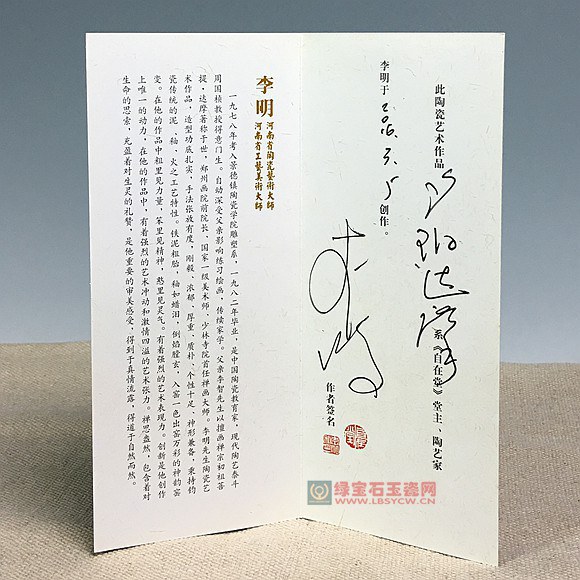 此陶瓷艺术作品 系《自在堂》堂主、陶艺家
李明于 创作。
作者签名
李明
河南省陶瓷藝術大师
河南省工藝美術大师
一九七八年考入景德镇陶瓷学院雕塑系，一九八二年毕业，是中国陶瓷教育家，现代陶艺泰斗
周国桢教授得意门生。自动深受父亲影响练习绘画，传续家学。父亲李智先生以擅画禅宗初祖菩
提·达摩著称于世，郑州画院前院长、国家一级美术师、少林寺院首任禅画大师。李明先生陶瓷艺
术作品，造型功底扎实，手法张放有度，刚毅、浓郁、厚重、质朴、个性十足，神形兼备，秉持钧
瓷传统的泥、釉、火之工艺特性。铁泥粗胎，釉如蜡泪，倒焰膛玄，入窑一色出窑万彩的神韵窑
变。在他的作品中粗里见力量，笨里见精神，憨里见灵气。有着强烈的艺术表现力。创新是他创作
上唯一的动力，在他的作品中，有着强烈的艺术冲动和激情四溢的艺术张力。禅思盎然，包含着对
生命的思索，充盈着对生灵的礼赞，是他重要的审美感受，得到于真情流露，得道于自然而然。
绿宝石玉瓷网
WWW.LBSYCW.CN